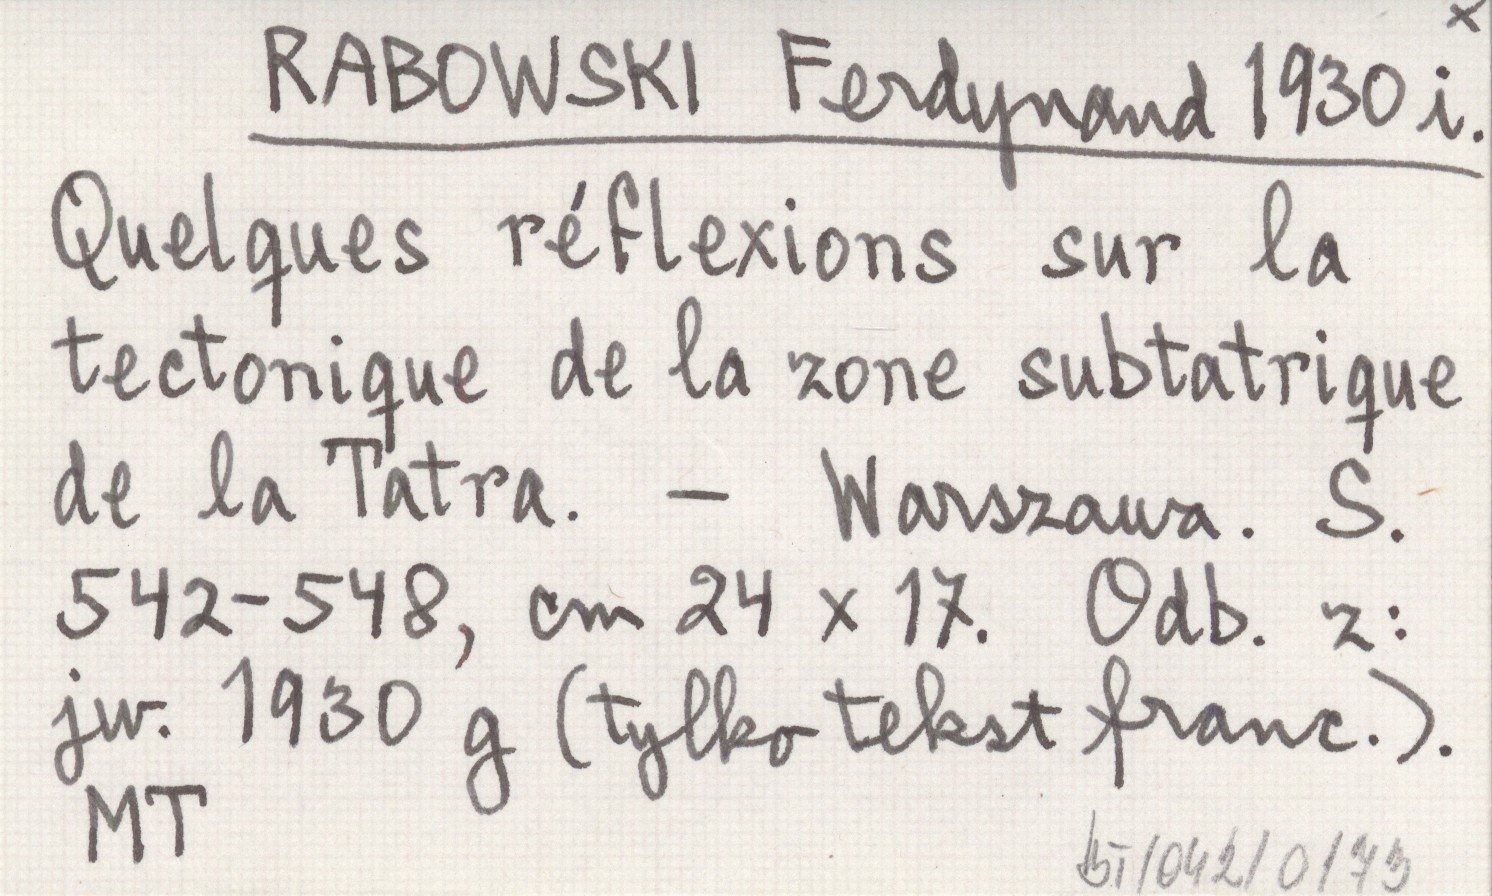 x
RABOWSKI Ferdynand 1930 i.
Quelques réflexions sur la
tectonique de la zone subtatrique
de la Tatra. – Warszawa. S.
542-548, cm 24 x 17. Odb. z:
jw. 1930 g (tylko tekst franc.).
MT
/042/0173